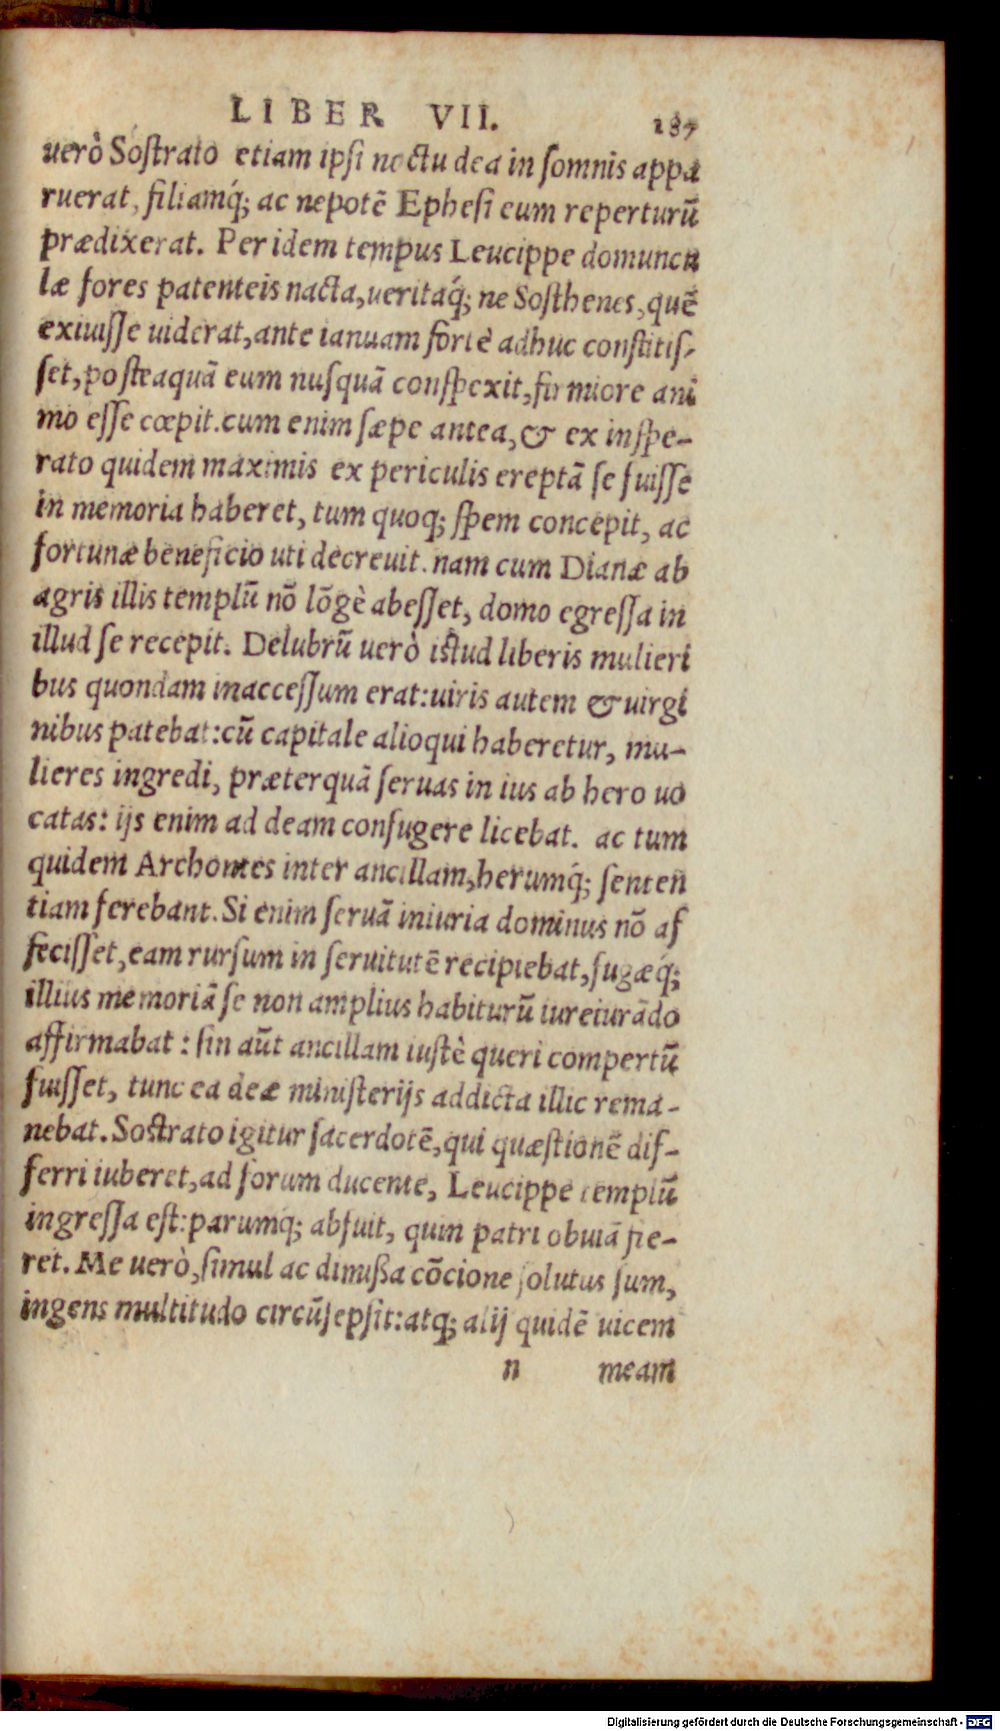 LIBER VII. 187
uerò Sostrato etiam ipsi noctu dea in somnis appa
ruerat, filiamq́; ac nepotē Ephesi eum reperturū
prædixerat. Per idem tempus Leucippe domuncu
læ fores patenteis nacta, ueritaq́; ne Sosthenes, quē
exiuisse uiderat, ante ianuam fortè adhuc constitis-
set, posteaquā eum nusquā conspexit, firmiore ani
mo esse cœpit. cum enim sæpe antea, & ex inspe-
rato quidem maximis ex periculis ereptā se fuisse
in memoria haberet, tum quoq; spem concepit, ac
fortunæ beneficio uti decreuit. nam cum Dianæ ab
agris illis templū nō lōgè abesset, domo egressa in
illud se recepit. Delubrū uerò istud liberis mulieri
bus quondam inaccessum erat: uiris autem & uirgi
nibus patebat: cū capitale alioqui haberetur, mu-
lieres ingredi, præterquā seruas in ius ab hero uo
catas: ijs enim ad deam confugere licebat. ac tum
quidem Archontes inter ancillam, herumq́; senten
tiam ferebant. Si enim seruā iniuria dominus nō af
fecisset, eam rursum in seruitutē recipiebat, fugæq́;
illius memoriā se non amplius habiturū iureiurādo
affirmabat: sin aūt ancillam iustè queri compertū
fuisset, tunc ea deæ ministerijs addicta illic rema-
nebat. Sostrato igitur sacerdotē, qui quæstionē dif-
ferri iuberet, ad forum ducente, Leucippe templū
ingressa est: parumq́; abfuit, quin patri obuiā fie-
ret. Me uerò, simul ac dimißa cōcione solutus sum,
ingens multitudo circūsepsit: atq; alij quidē uicem
n meam
Digitalisierung gefördert durch die Deutsche Forschungsgemeinschaft - DFG